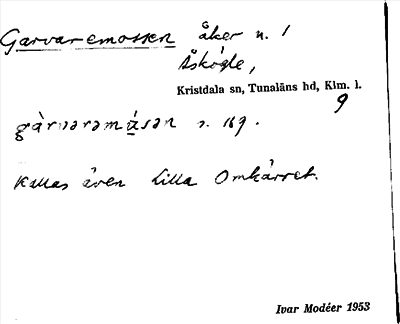 Garvaremossen åker n. 1
Åskögle,
Kristdala sn, Tunaläns hd, Klm. l.
9
gàrvarəmåsən s. 169.
Kallas även Lilla Omkärret.
Ivar Modéer 1953